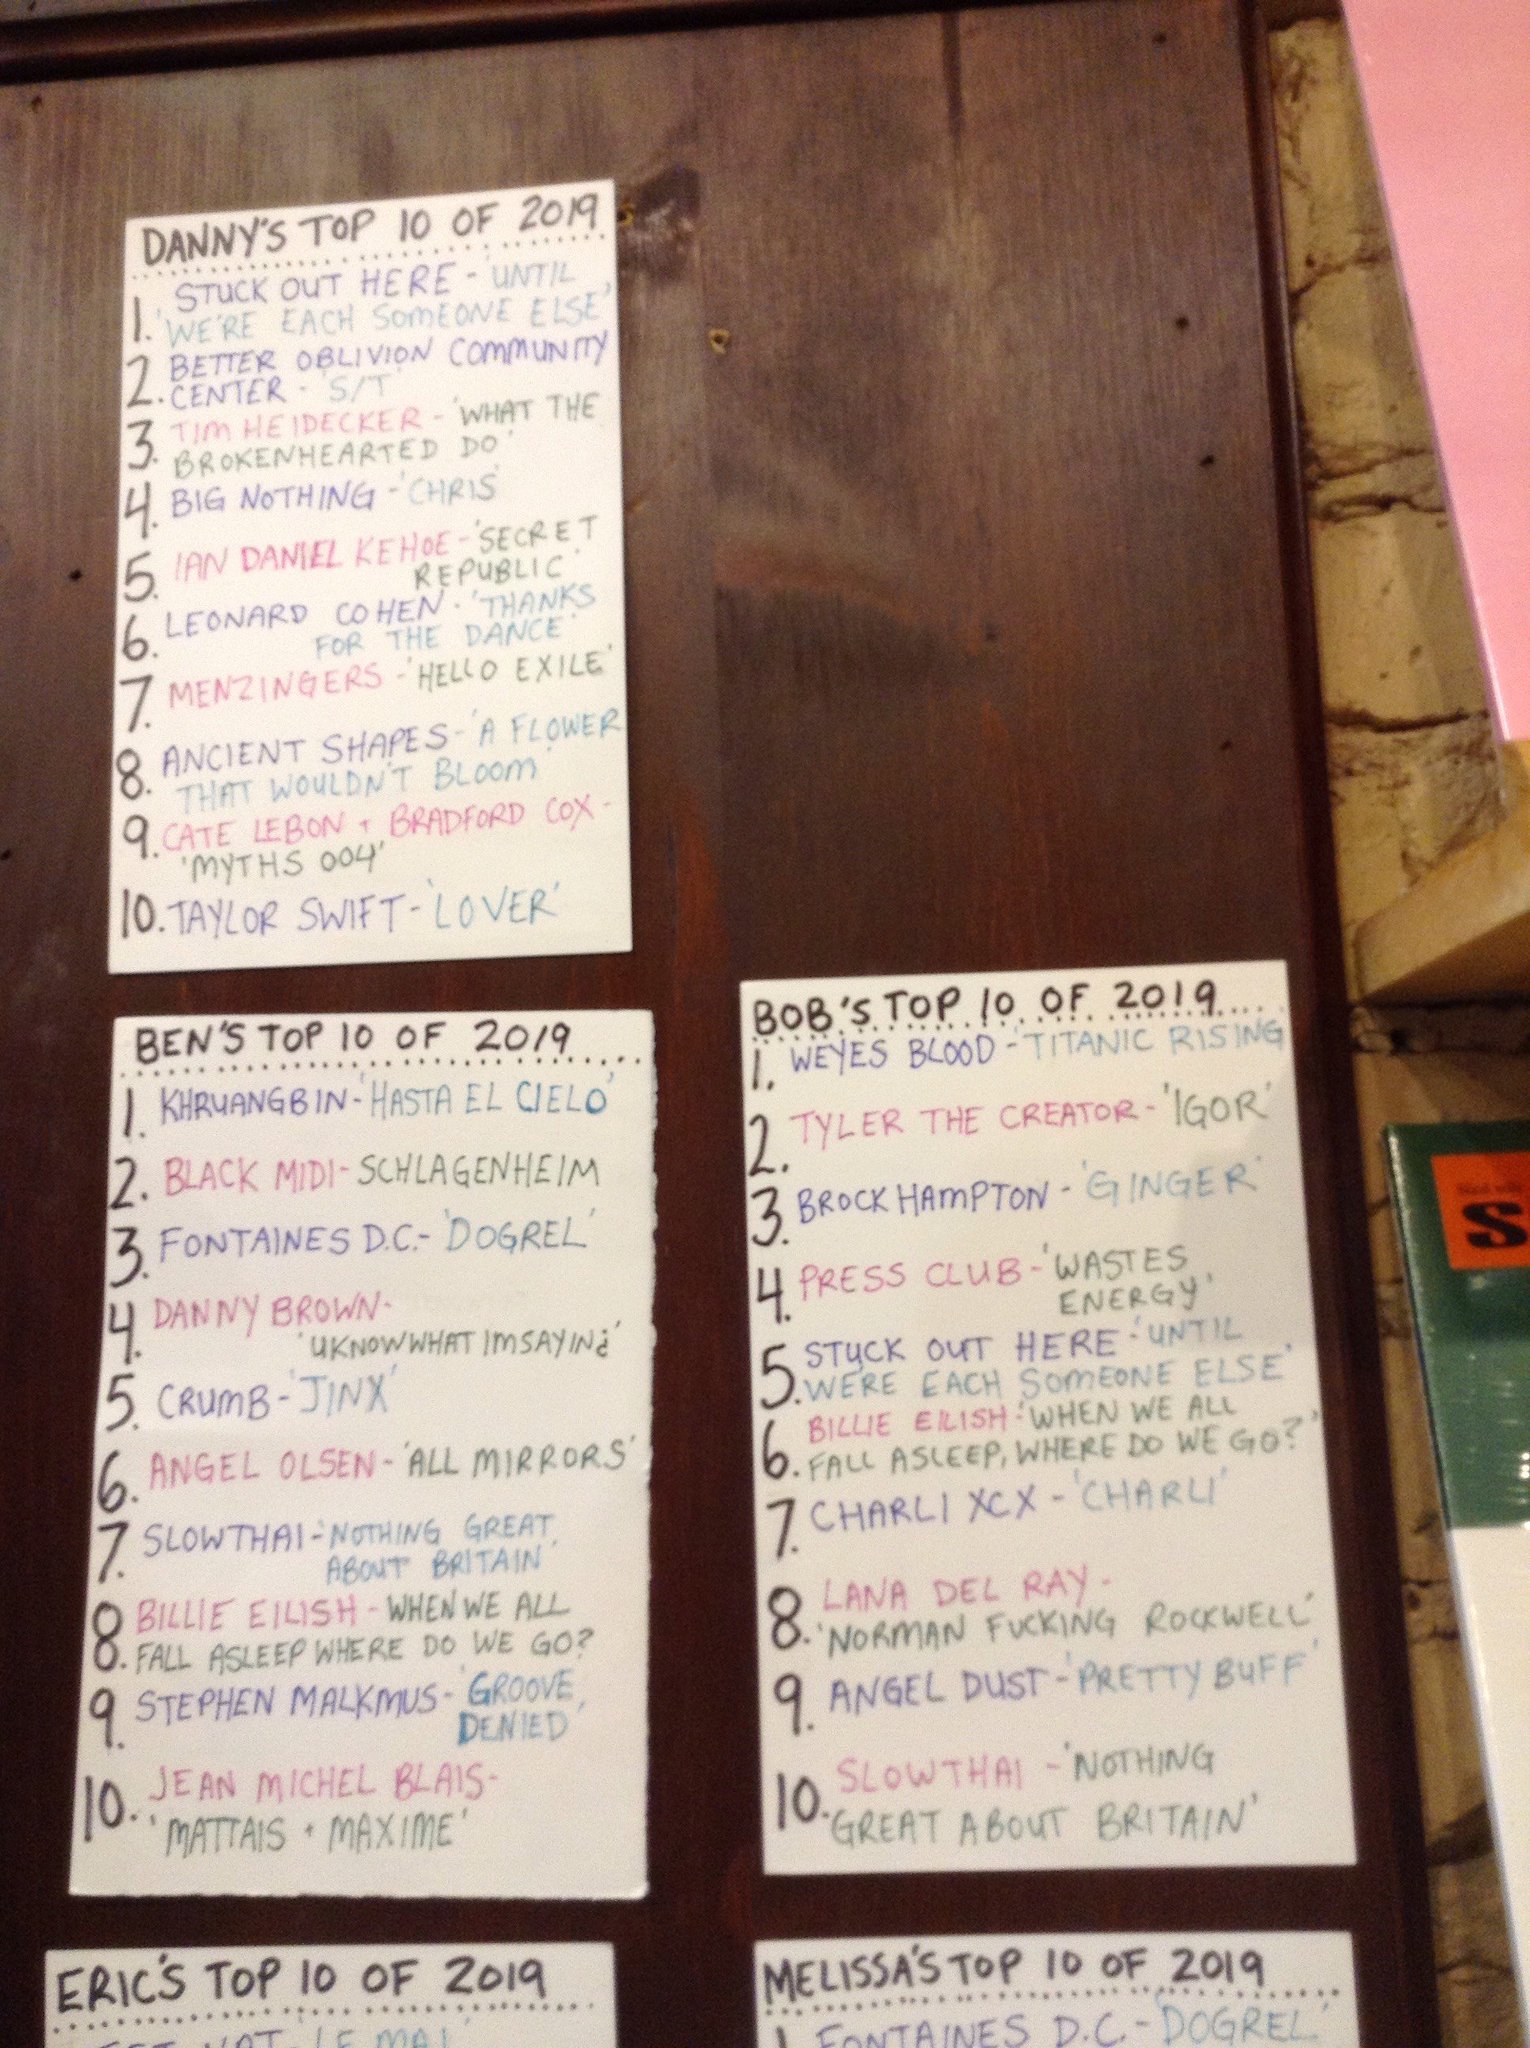 DANNY'S TOP 10 OF 2019
1. STUCK OUT HERE - 'UNTIL
WE'RE EACH SOMEONE ELSE'
2. BETTER OBLIVION COMMUNITY
CENTER - 'S/T'
3. TIM HEIDECKER - 'WHAT THE
BROKENHEARTED DO'
4. BIG NOTHING - 'CHRIS'
5. IAN DANIEL KEHOE - 'SECRET
REPUBLIC'
6. LEONARD COHEN - 'THANKS
FOR THE DANCE'
7. MENZINGERS - 'HELLO EXILE'
8. ANCIENT SHAPES - 'A FLOWER
THAT WOULDN'T BLOOM'
9. CATE LEBON + BRADFORD COX -
'MYTHS 004'
10. TAYLOR SWIFT - 'LOVER'
BEN'S TOP 10 OF 2019
1. KHRUANGBIN - 'HASTA EL CIELO'
2. BLACK MIDI - SCHLAGENHEIM
3. FONTAINES D.C. - 'DOGREL'
4. DANNY BROWN -
'UKNOWWHATIMSAYIN¿'
5. CRUMB - 'JINX'
6. ANGEL OLSEN - 'ALL MIRRORS'
7. SLOWTHAI - 'NOTHING GREAT
ABOUT BRITAIN'
8. BILLIE EILISH - WHEN WE ALL
FALL ASLEEP WHERE DO WE GO?
9. STEPHEN MALKMUS - 'GROOVE
DENIED'
10. JEAN MICHEL BLAIS -
'MATTAIS + MAXIME'
BOB'S TOP 10 OF 2019
1. WEYES BLOOD - 'TITANIC RISING
2. TYLER THE CREATOR - 'IGOR'
3. BROCKHAMPTON - 'GINGER'
4. PRESS CLUB - 'WASTES
ENERGY'
5. STUCK OUT HERE - 'UNTIL
WE'RE EACH SOMEONE ELSE'
6. BILLIE EILISH - 'WHEN WE ALL
FALL ASLEEP, WHERE DO WE GO?'
7. CHARLI XCX - 'CHARLI'
8. LANA DEL RAY -
'NORMAN FUCKING ROCKWELL'
9. ANGEL DUST - 'PRETTY BUFF'
10. SLOWTHAI - 'NOTHING
GREAT ABOUT BRITAIN'
ERIC'S TOP 10 OF 2019
'LE MAL'
MELISSA'S TOP 10 OF 2019
1. FONTAINES D.C. - 'DOGREL'
S